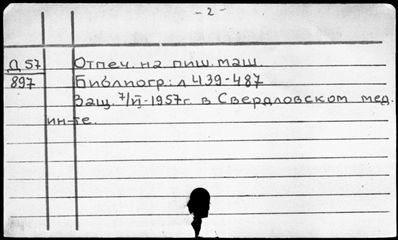 - 2 -
Д 57 Отпеч. на пиш. маш.
897 Библиогр.: л 439-487
Защ. 7/VI-1957г. в Свердловском мед.
ин-те.